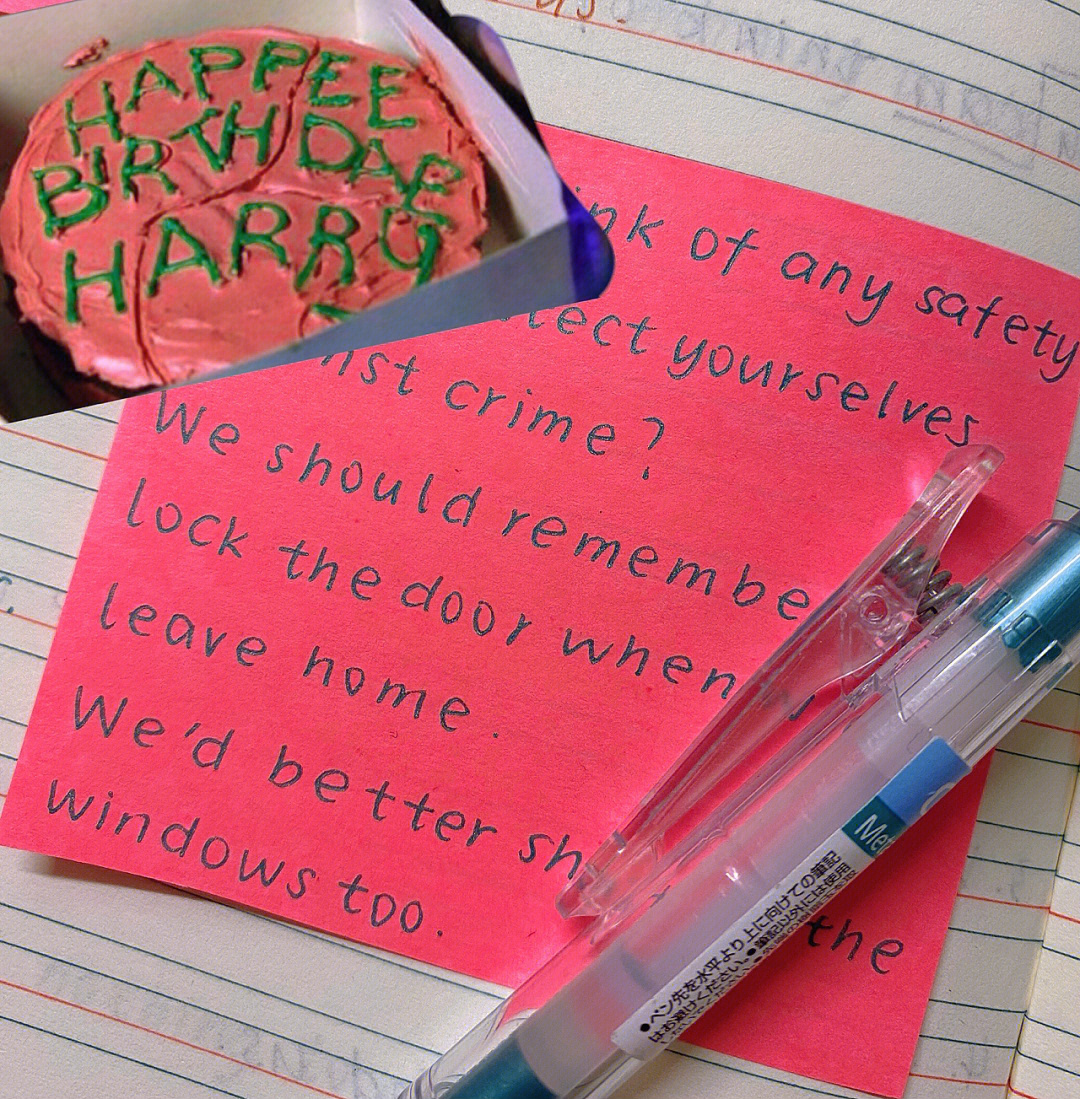 HAPPEE
BIRTHDAE
HARRY
of any safety
yourselves
crime?
We should
lock the door when
leave home.
We'd better
the
windows too.
●ペン先を水平より上に向けての筆記
はお避けください。●筆記以外には使用
しないでください。